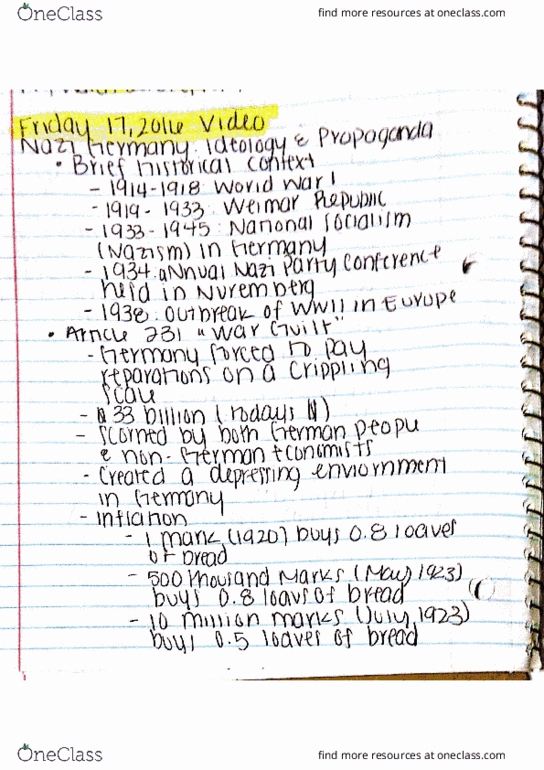 OneClass find more resources at oneclass.com
Friday 17, 2016 Video
Nazi Germany: Ideology & Propaganda
• Brief historical context
- 1914-1918: World War I
- 1919 - 1933: Weimar Republic
- 1933 - 1945: National Socialism
(Nazism) in Germany
- 1934: annual Nazi Party Conference
held in Nuremberg
- 1938: outbreak of WWII in Europe
• Article 231 "War Guilt"
- Germany forced to pay
reparations on a crippling
scale
- $ 33 billion (todays $)
- scorned by both German people
& non-German Economists
- Created a depressing enviornment
in Germany
- Inflation
- 1 mark (1920) buys 0.8 loaves
of bread
- 500 thousand marks (May 1923)
buys 0.8 loavs of bread
- 10 million marks (July, 1923)
buys 0.5 loaves of bread
OneClass find more resources at oneclass.com